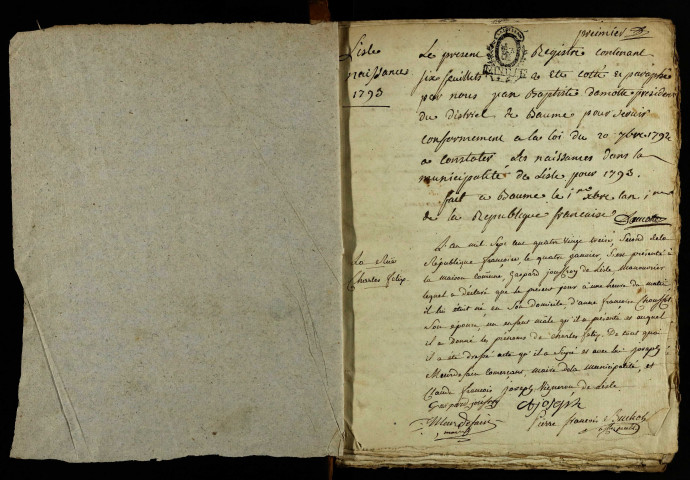 premier
Lisle
naissance
1793
Le present Registre contenant
six feuillets a ete cotté & paraphé
par nous jean Baptiste président
du district de Baume pour servir
conformement a la loi du 20 7bre 1792
a constater les naissances dans la
municipalité de Lisle pour 1793.
fait a Baume le 1er xbre lan 1er
de la Republique francaise
Charles felix
L'an mil sept cent quatre vingt treize, second de la
République françoise, le quatre janvier, s'est présenté à
la maison commune, Gaspard jouffroy de Lisle,
lequel a déclaré que le présent jour à une heure du matin
il lui étoit né, en son domicile, d'anne françoise
son épouse, un enfant mâle qu'il a présenté et auquel
il a donné les prenoms de charles felix. De tout quoi
il a été dressé acte qu'il a signé et avec lui joseph
maire de la municipalité, et
Claude françois joseph Vigneron de Lisle.
Gaspard jouffroy
Pierre francois